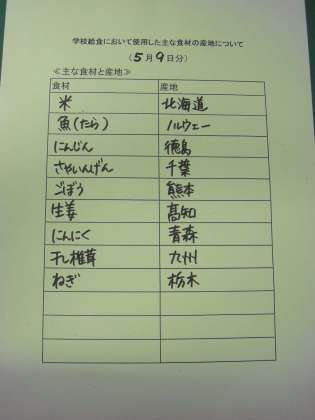 学校給食において使用した主な食材の産地について
(5月9日分)
≪主な食材と産地≫
食材 産地
米 北海道
魚(たら) ノルウェー
にんじん 徳島
さやいんげん 千葉
ごぼう 熊本
生姜 高知
にんにく 青森
干し椎茸 九州
ねぎ 栃木